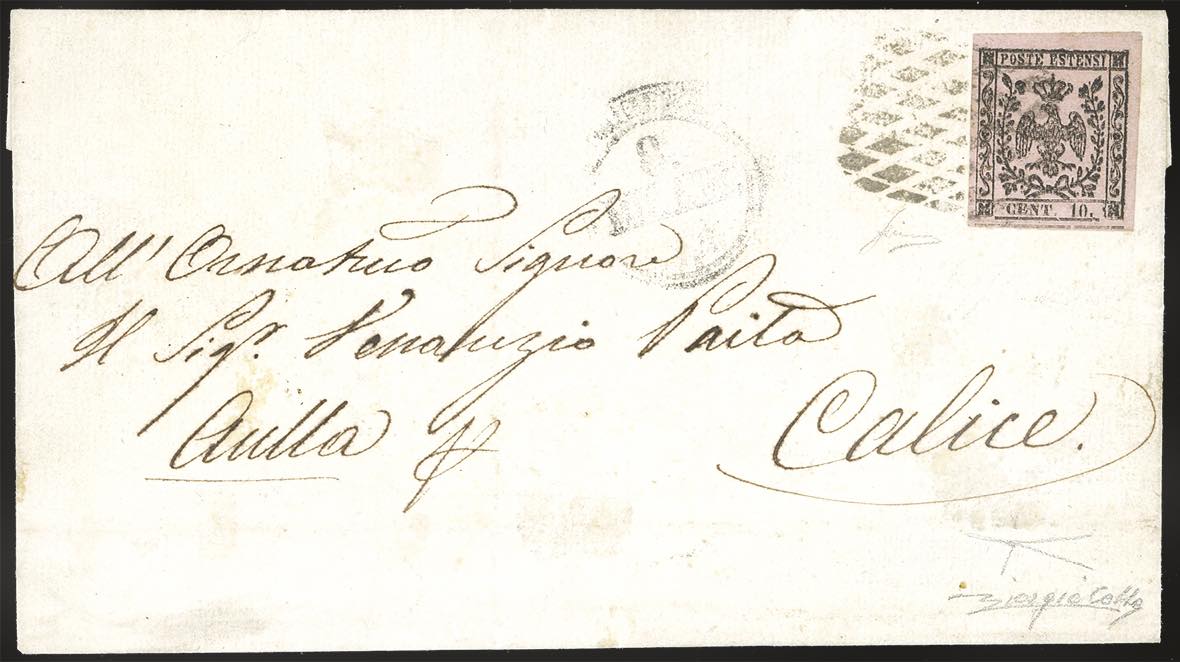 POSTE ESTENSI
CENT. 10.
All' Ornatmo Signore
Il Sigr. Venanzio Paita
Aulla p Calice.
Giorgio Colla